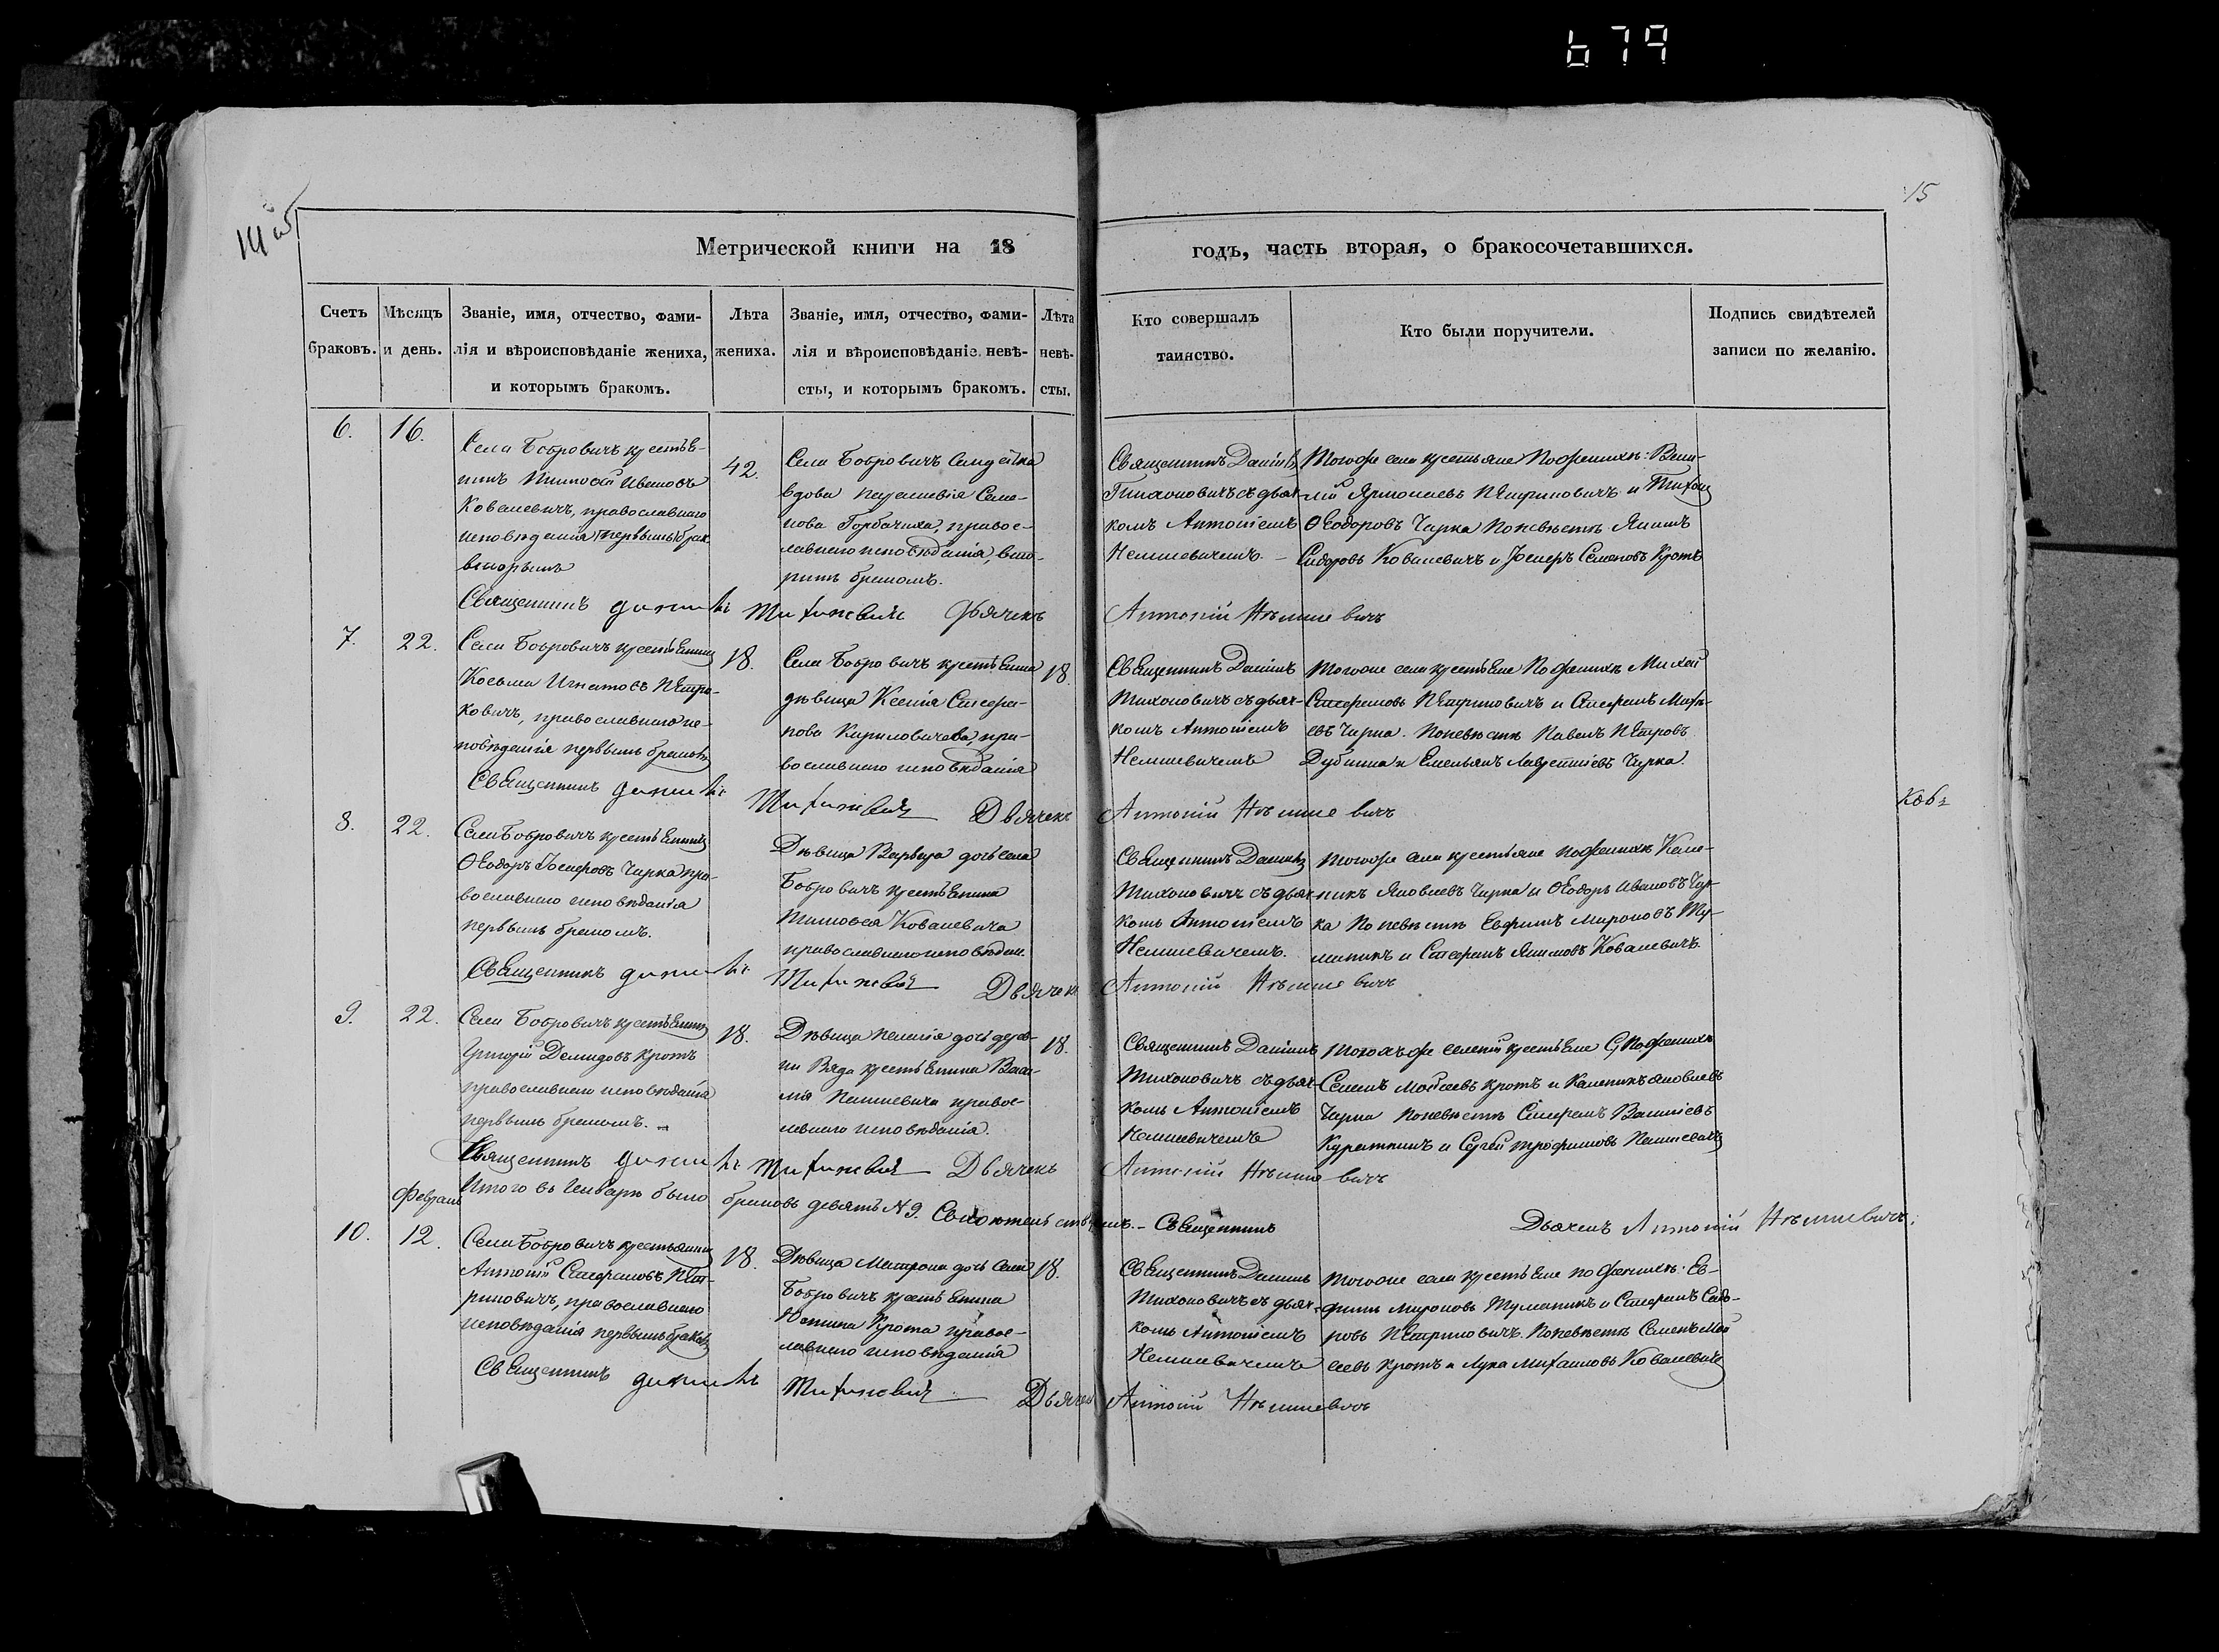 679
15
Метрической книги на 18
годъ, часть вторая, о бракосочетавшихся.
Счетъ браковъ.
Мѣсяцъ и день.
Званіе, имя, отчество, фами-
лія и вѣроисповѣданіе жениха,
и которымъ бракомъ.
Лѣта
жениха.
Званіе, имя, отчество, фами-
лія и вѣроисповѣданіе невѣ-
сты, и которымъ бракомъ.
Лѣта
невѣ-
сты.
Кто совершалъ
таинство.
Кто были поручители.
Подпись свидѣтелей
записи по желанію.
6.
16.
Села Бобровичъ крестья-
нинъ Тимофей Ивановъ
Ковалевичъ, православнаго
исповѣданія первымъ брак.
вторымъ
42.
Села Бобровичъ
вдова Параскевія Семе-
нова Горбачиха, правос-
лавнаго исповѣданія, вто-
рымъ бракомъ.
Священникъ Даніилъ
Тихоновичъ съ дьяч-
комъ Антоніемъ
Немшевичемъ.
Тогоже села крестьяне По женихѣ: Васи-
лій Ярмолаевъ Петриковичъ и Тихон
Ѳеодоровъ Чирка По невѣстѣ Якимъ
Сидоровъ Ковалевичъ и Іосифъ Семеновъ Кротъ
Священникъ Даниилъ Тихоновичъ Дьячекъ Антоній Нѣмшевичъ
7.
22.
Села Бобровичъ крестьянинъ
Косьма Игнатовъ Петри-
ковичъ, православнаго ис-
повѣданія первымъ бракомъ
18.
Села Бобровичъ крестьянка
дѣвица Ксенія Стефа-
нова Кириловичева, пра-
вославнаго исповѣданія
18.
Священникъ Даніилъ
Тихоновичъ съ дьяч-
комъ Антоніемъ
Немшевичемъ
Тогоже села крестьяне По женихѣ Михаи
Стефановъ Петриковичъ и Стефанъ Матѳ-
евъ Чирка. По невѣстѣ Павелъ Петровъ
Дубинка и Емельянъ Лаврентіевъ Чирка.
Священникъ Даниилъ Тихоновичъ Дьячекъ Антоній Нѣмшевичъ
8.
22.
Села Бобровичъ крестьянинъ
Ѳеодоръ Іосифовъ Чирка пра-
вославнаго исповѣданія
первымъ бракомъ.
Дѣвица Варвара дочь села
Бобровичъ крестьянина
Тимофея Ковалевича
православнаго исповѣдан.
Священникъ Даніилъ
Тихоновичъ съ дьяч-
комъ Антоніемъ
Немшевичемъ.
Тогоже села крестьяне По женихѣ Кале-
никъ Яковлевъ Чирка и Ѳеодоръ Ивановъ Чир-
ка По невѣстѣ Евфимъ Мироновъ Ту-
маникъ и Стефанъ Якимовъ Ковалевичъ.
Священникъ Даниилъ Тихоновичъ Дьячекъ Антоній Нѣмшевичъ
9.
22.
Села Бобровичъ крестьянинъ
Григорій Демидовъ Кротъ
православнаго исповѣданія
первымъ бракомъ.
18.
Дѣвица дочь дерев-
ни Вяда крестьянина Васи-
лія православ-
лавнаго исповѣданія.
18.
Священникъ Даніилъ
Тихоновичъ съ дьяч-
комъ Антоніемъ
Немшевичемъ
крестьяне По женихѣ
Семенъ Моѵсеевъ Кротъ и Каленикъ Яковлевъ
Чирка По невѣстѣ Стефанъ Василіевъ
и Сергій Трофимовъ
Священникъ Даниилъ Тихоновичъ Дьячекъ Антоній Нѣмшевичъ
Итого въ Генварѣ было браковъ девять № 9. Священникъ Дьячекъ Антоній Нѣмшевичъ.
Февраль
10.
12.
Села Бобровичъ крестьянинъ
Антоній Стефановъ Пет-
риковичъ, православнаго
исповѣданія первымъ бракомъ
18.
Дѣвица Матрона дочь села
Бобровичъ крестьянина
Крота правос-
лавнаго исповѣданія
18.
Священникъ Даніилъ
Тихоновичъ съ дьяч-
комъ Антоніемъ
Немшевичемъ
Тогоже села крестьяне по женихѣ: Ев-
фимъ Мироновъ Туманикъ и Стефанъ Сидо-
ровъ Петриковичъ. По невѣстѣ Семенъ Мои
сеевъ Кротъ и Лука Михаиловъ Ковалевичъ
Священникъ Даниилъ Тихоновичъ Дьячекъ Антоній Нѣмшевичъ